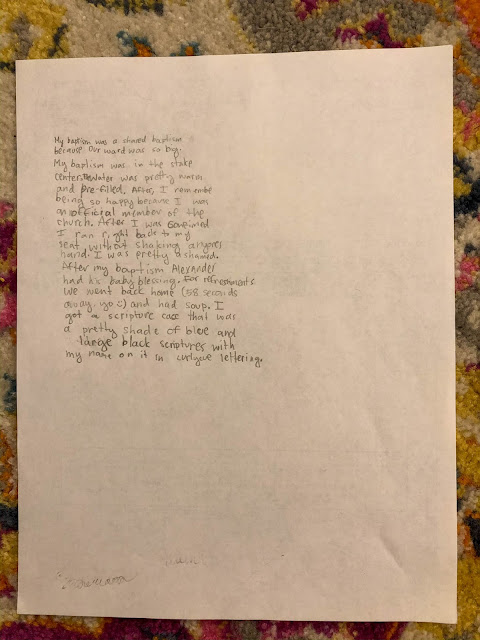 My baptism was a shared baptism
because Our ward was so big.
My baptism was in the stake
center. The water was pretty warm
and pre-filled. After, I remembe
being so happy because I was
an official member of the
church. After I was confirmed
I ran right back to my
seat without shaking anyones
hand. I was pretty ashamed.
After my baptism Alexander
had his baby blessing. For refreshments
we went back home (58 seconds
away. yo :) and had soup. I
got a scripture case that was
a pretty shade of blue and
large black scriptures with
my name on it in curlycue lettering.